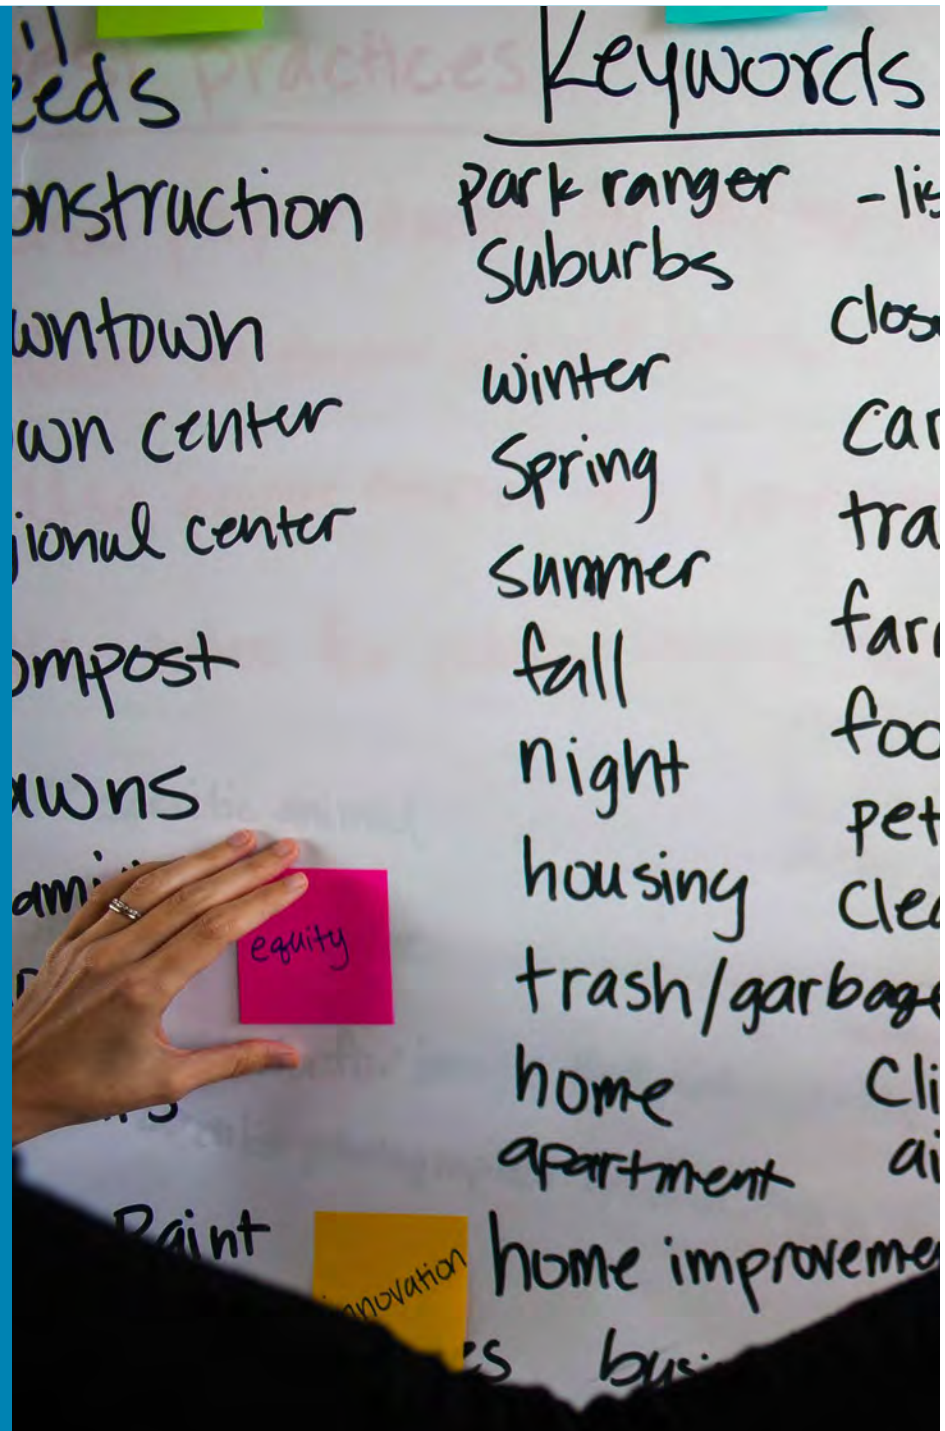 eeds
onstruction
wntown
own center
gional center
ompost
awns
ami
equity
Paint
nnovation
es
Keywords
park ranger
suburbs
winter
Spring
summer
fall
night
housing
trash/garbage
home
apartment
home improveme
busi
-lis
close
car
tra
farm
foo
pet
Clea
Cli
ai
practices